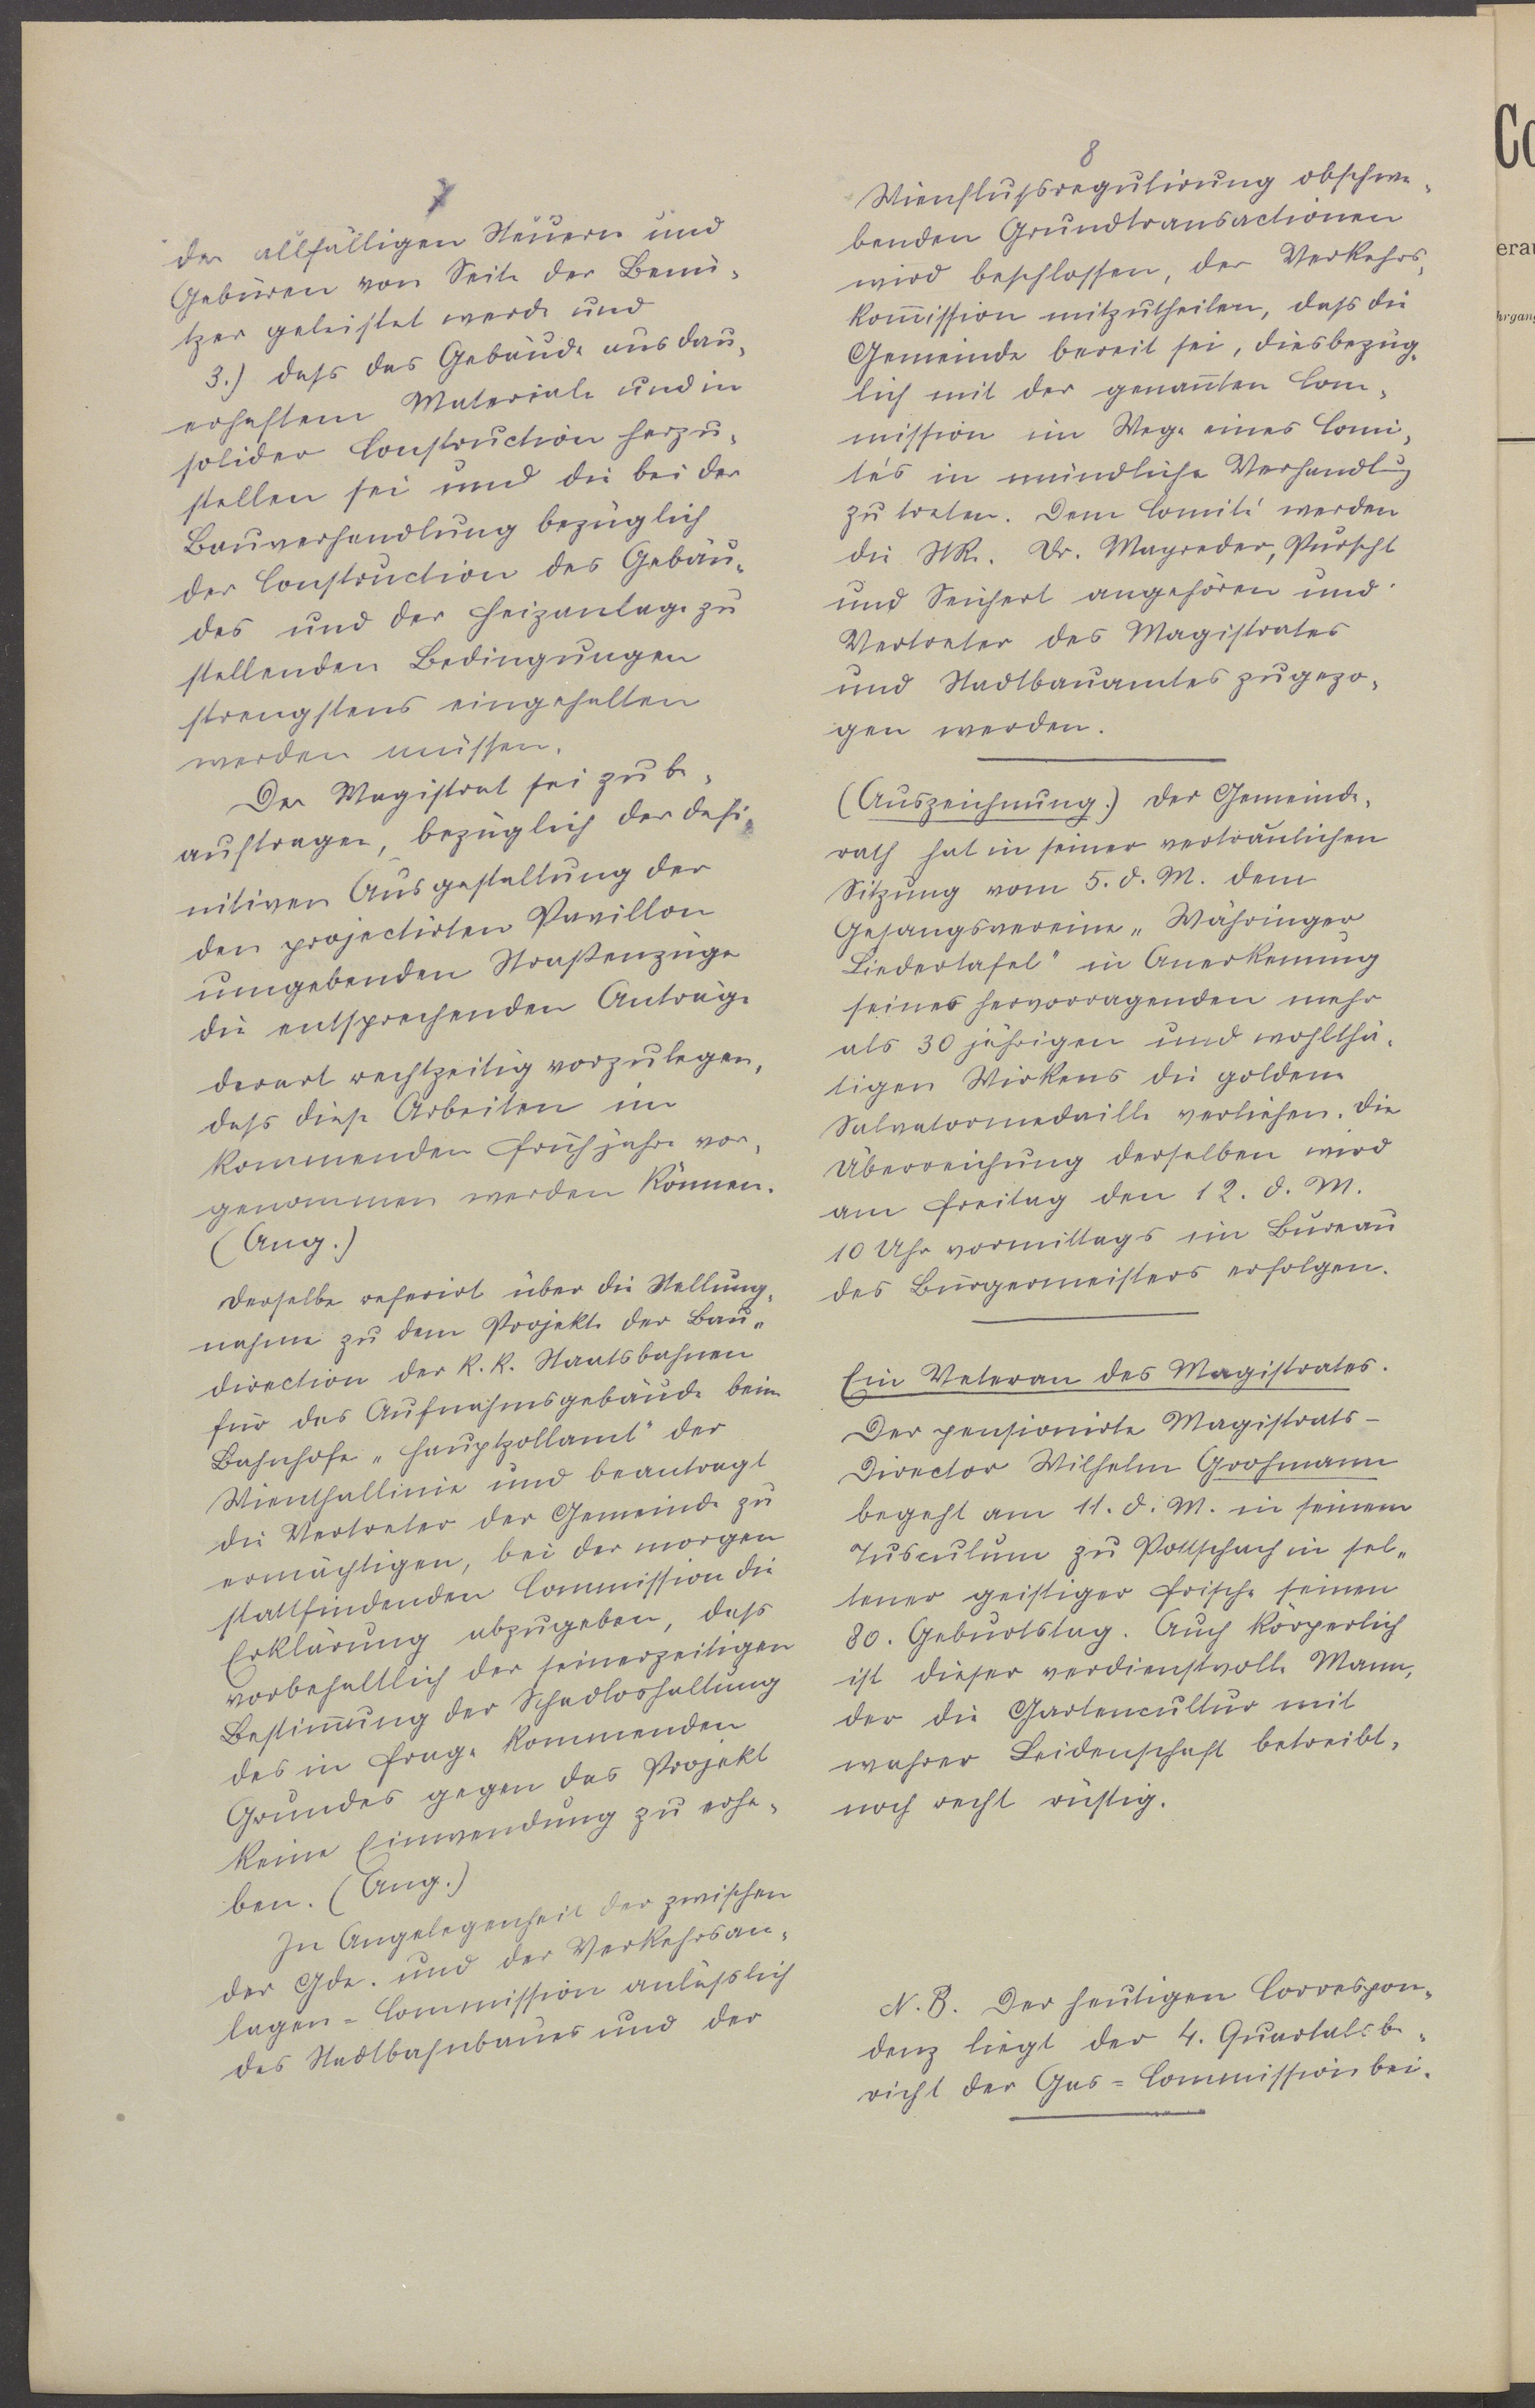 7
der allfälligen Steuern und
Gebüren von Seite der Benü-
tzer geleistet werde und
3.) dass das Gebäude aus dau-
erhaftem Materiale und in
solider Construction herzu-
stellen sei und die bei der
Bauverhandlung bezüglich
der Construction des Gebäu-
des und der Heizanlage zu
stellenden Bedingungen
strengstens eingehalten
werden müssen.
Der Magistrat sei zu be-
auftragen, bezüglich der defi-
nitiven Ausgestaltung der
den projectirten Pavillon
umgebenden Straßenzüge
die entsprechenden Anträge
derart rechtzeitig vorzulegen,
dass diese Arbeiten im
kommenden Frühjahre vor-
genommen werden können.
(Ang.)
Derselbe referirt über die Stellung-
nahme zu dem Projekte der Bau-
direction der k.k. Staatsbahnen
für das Aufnahmsgebäude beim
Bahnhofe „Hauptzollamt" der
Wienthallinie und beantragt
die Vertreter der Gemeinde zu
ermächtigen, bei der morgen
stattfindenden Commission die
Erklärung abzugeben, dass
vorbehaltlich der seinerzeitigen
Bestim̅ung der Schadloshaltung
des in Frage kommenden
Grundes gegen das Projekt
keine Einwendung zu erhe-
ben. (Ang.)
In Angelegenheit der zwischen
der Gde. und der Verkehrsan-
lagen-Commission anlässlich
des Stadtbahnbaues und der
8
Wienflußregulirung obschwe-
benden Grundtransactionen
wird beschlossen, der Verkehrs-
kom̅ission mitzutheilen, dass die
Gemeinde bereit sei, diesbezüg-
lich mit der genan̅ten Com-
mission im Wege eines Comi-
tés in mündliche Verhandlug
zu treten. Dem Comité werden
die StR. Dr. Mayreder, Purscht
und Seichert angehören und
Vertreter des Magistrates
und Stadtbauamtes zugezo-
gen werden.
(Auszeichnung.) Der Gemeinde-
rath hat in seiner vertraulichen
Sitzung vom 5. d. M. dem
Gesangsvereine „Währinger
Liedertafel" in Anerkennung
seines hervorragenden mehr
als 30 jährigen und wohlthä-
tigen Wirkens die goldene
Salvatormedaille verliehen. Die
Überreichung derselben wird
am Freitag den 12. d. M.
10 Uhr vormittags im Bureau
des Bürgermeisters erfolgen.
Ein Veteran des Magistrates.
Der pensionirte Magistrats-
Director Wilhelm Grohmann
begeht am 11. d. M. in seinem
Tusculum zu Pottschach in sel-
tener geistiger Frische seinen
80. Geburtstag. Auch körperlich
ist dieser verdienstvolle Mann,
der die Gartencultur mit
wahrer Leidenschaft betreibt,
noch recht rüstig.
N. B. Der heutigen Correspon-
denz liegt der 4. Quartalsbe-
richt der Gas-Commission bei.